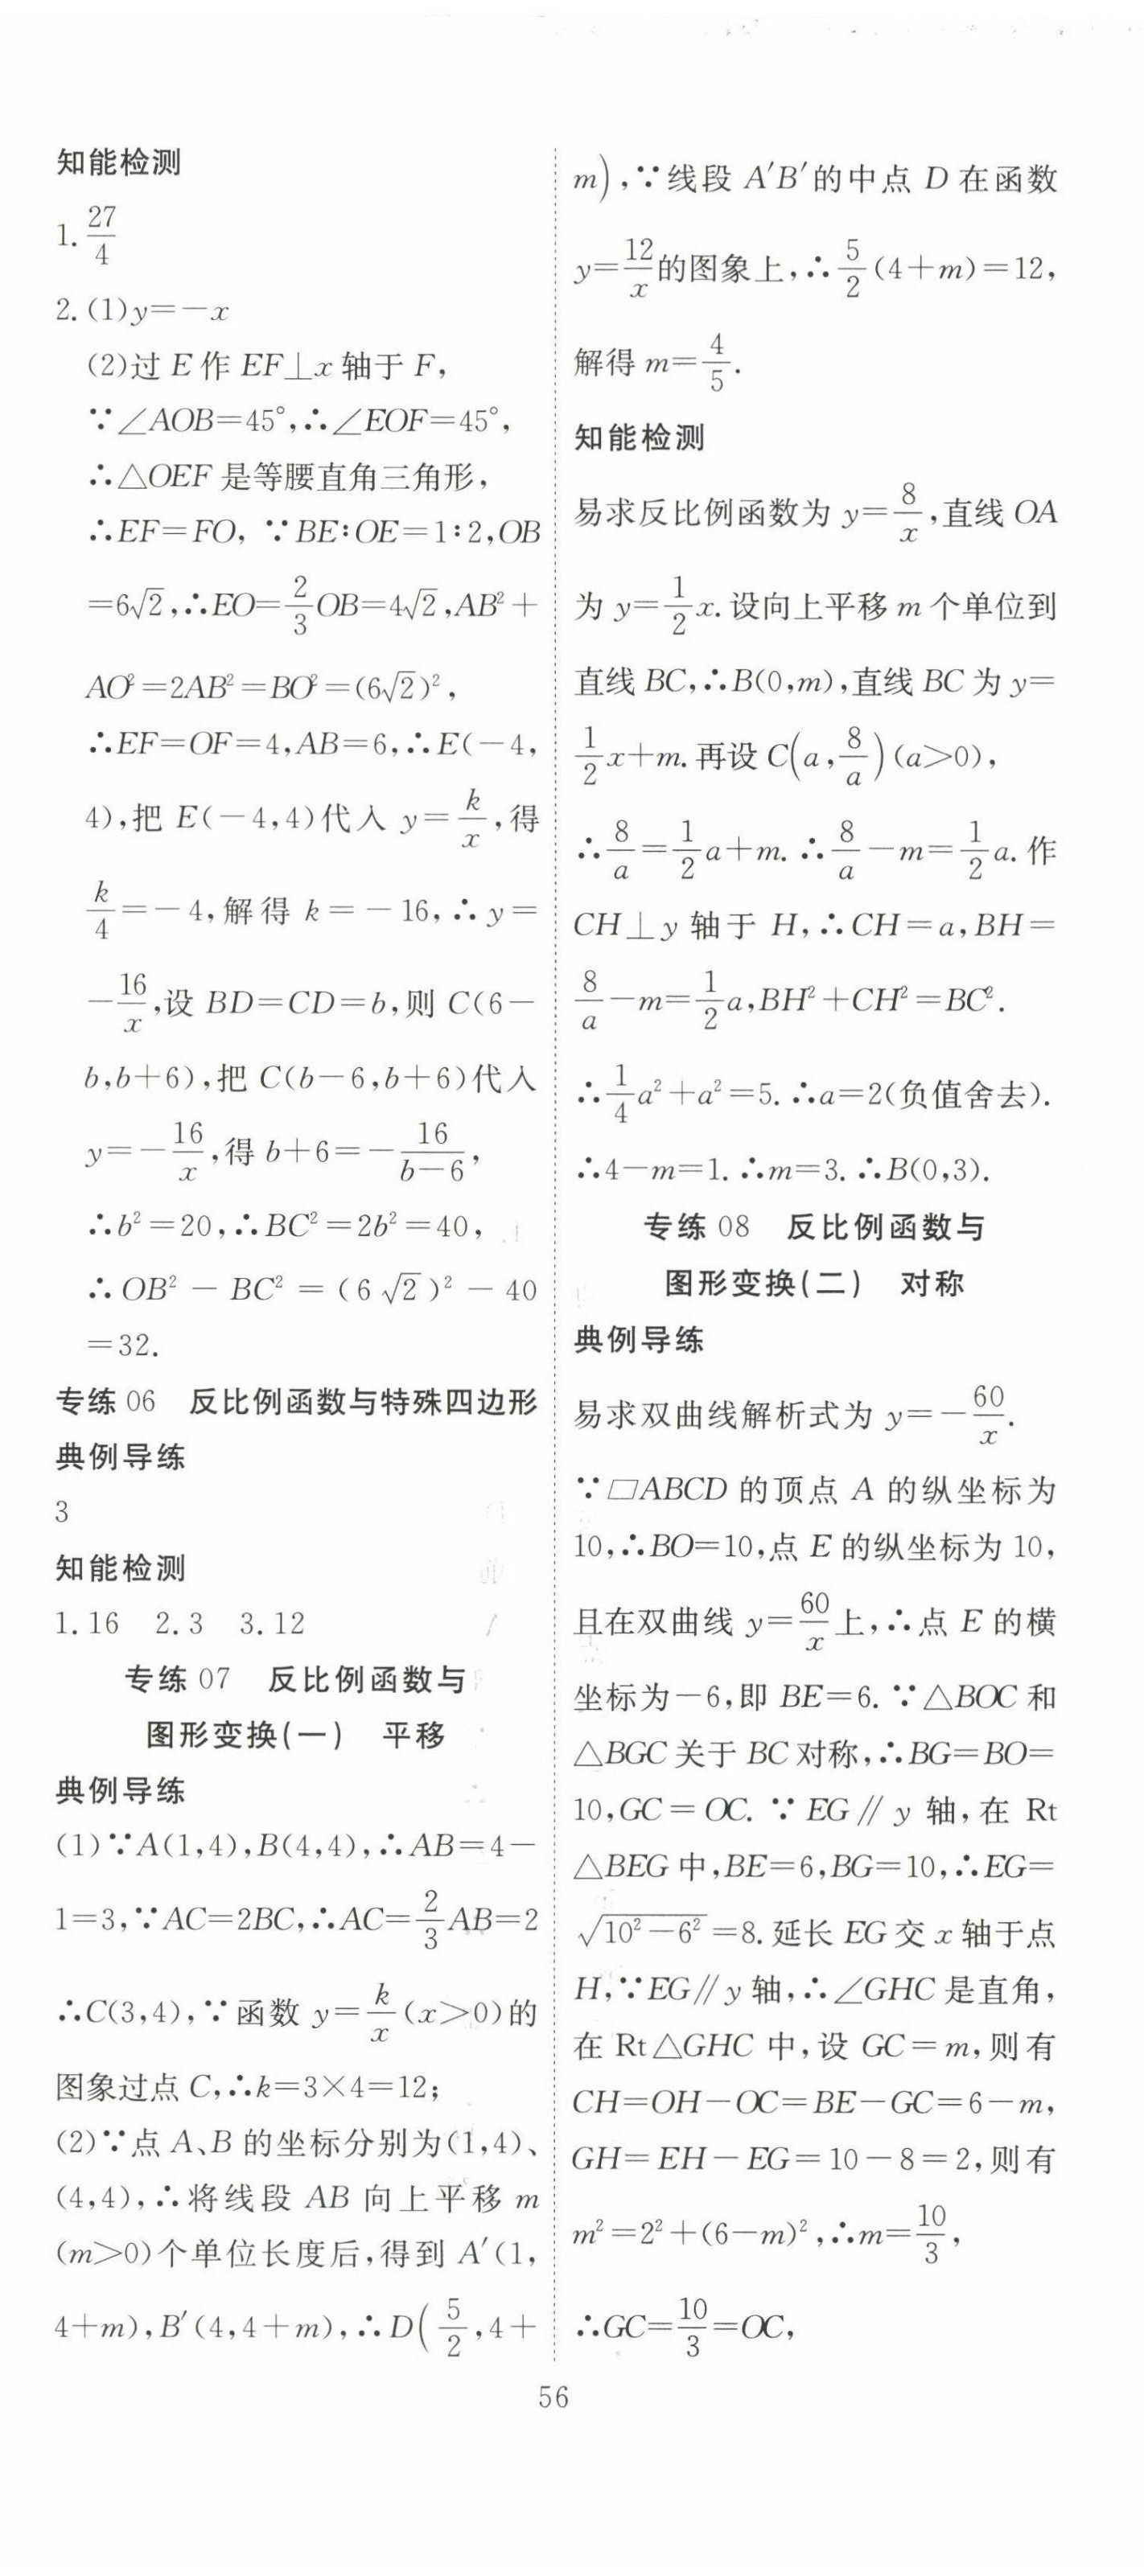 知能检测
1. 27/4
2. (1)y=-x
(2)过 E 作 EF⊥x 轴于 F,
∵∠AOB=45°,∴∠EOF=45°,
∴△OEF 是等腰直角三角形,
∴EF=FO, ∵BE∶OE=1∶2,OB
=6√2,∴EO=2/3OB=4√2,AB²+
AO²=2AB²=BO²=(6√2)²,
∴EF=OF=4,AB=6,∴E(-4,
4),把 E(-4,4)代入 y=k/x,得
k/4=-4,解得 k=-16,∴y=
-16/x,设 BD=CD=b,则 C(6-
b,b+6),把 C(b-6,b+6)代入
y=-16/x,得 b+6=-16/(b-6),
∴b²=20,∴BC²=2b²=40,
∴OB²-BC²=(6√2)²-40
=32.
专练 06 反比例函数与特殊四边形
典例导练
3
知能检测
1.16 2.3 3.12
专练 07 反比例函数与
图形变换(一) 平移
典例导练
(1)∵A(1,4),B(4,4),∴AB=4-
1=3,∵AC=2BC,∴AC=2/3AB=2
∴C(3,4),∵函数 y=k/x(x>0)的
图象过点 C,∴k=3×4=12;
(2)∵点 A、B 的坐标分别为(1,4)、
(4,4),∴将线段 AB 向上平移 m
(m>0)个单位长度后,得到 A′(1,
4+m),B′(4,4+m),∴D(5/2,4+
m),∵线段 A′B′的中点 D 在函数
y=12/x的图象上,∴5/2(4+m)=12,
解得 m=4/5.
知能检测
易求反比例函数为 y=8/x,直线 OA
为 y=1/2x.设向上平移 m 个单位到
直线 BC,∴B(0,m),直线 BC 为 y=
1/2x+m.再设 C(a,8/a)(a>0),
∴8/a=1/2a+m.∴8/a-m=1/2a.作
CH⊥y 轴于 H,∴CH=a,BH=
8/a-m=1/2a,BH²+CH²=BC².
∴1/4a²+a²=5.∴a=2(负值舍去).
∴4-m=1.∴m=3.∴B(0,3).
专练 08 反比例函数与
图形变换(二) 对称
典例导练
易求双曲线解析式为 y=-60/x.
∵▱ABCD 的顶点 A 的纵坐标为
10,∴BO=10,点 E 的纵坐标为 10,
且在双曲线 y=60/x上,∴点 E 的横
坐标为-6,即 BE=6.∵△BOC 和
△BGC 关于 BC 对称,∴BG=BO=
10,GC=OC.∵EG∥y 轴,在 Rt
△BEG 中,BE=6,BG=10,∴EG=
√(10²-6²)=8.延长 EG 交 x 轴于点
H,∵EG∥y 轴,∴∠GHC 是直角,
在 Rt△GHC 中,设 GC=m,则有
CH=OH-OC=BE-GC=6-m,
GH=EH-EG=10-8=2,则有
m²=2²+(6-m)²,∴m=10/3,
∴GC=10/3=OC,
56